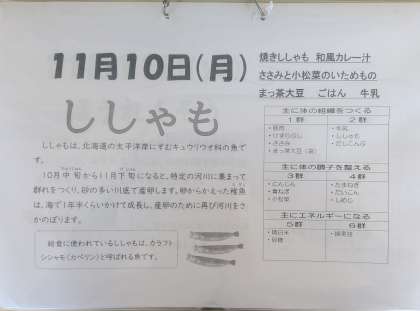 11月10日(月)
焼きししゃも 和風カレー汁
ささみと小松菜のいためもの
まっ茶大豆 ごはん 牛乳
ししゃも
ししゃもは、北海道の太平洋岸にすむキュウリウオ科の魚で
す。
10月中旬から11月下旬になると、特定の河川に集まって
群れをつくり、砂の多い川底で産卵します。卵からかえった稚魚
は、海で1年半くらいかけて成長し、産卵のために再び河川をさ
かのぼります。
給食に使われているししゃもは、カラフト
シシャモ(カペリン)と呼ばれる魚です。
主に体の組織をつくる
1群 2群
・豚肉
・ささみ
・まっ茶大豆(袋)
・牛乳
・ししゃも
・だしこんぶ
主に体の調子を整える
3群 4群
・にんじん
・青ねぎ
・小松菜
・たまねぎ
・だいこん
・しめじ
主にエネルギーになる
5群 6群
・精白米
・砂糖